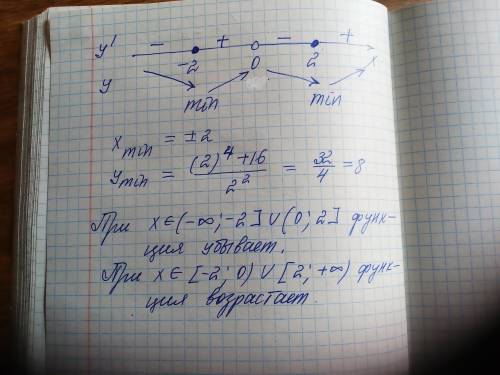 y' − + − +
-2 0 2 x
y min min
x min = ±2
y min = (2)^4+16 / 2^2 = 32/4 = 8
При x∈(-∞;-2]∪(0;2] функ-
ция убывает.
При x∈[-2;0)∪[2;+∞) функ-
ция возрастает.